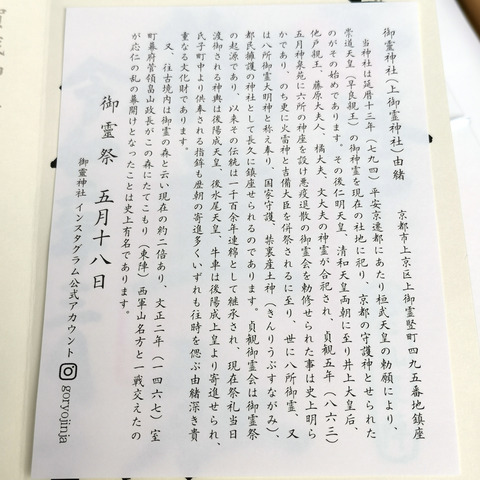 御霊神社(上御霊神社)由緒
京都市上京区上御霊竪町四九五番地鎮座
当神社は延暦十三年(七九四)平安京遷都にあたり桓武天皇の勅願により、
崇道天皇(早良親王)の御神霊を現在の社地に祀り、京都の守護神とせられた
のがその始めであります。その後仁明天皇、清和天皇両朝に至り井上大皇后、
他戸親王、藤原大夫人、橘大夫、文大夫の神霊が合祀され、貞観五年(八六三)
五月神泉苑に六所の神座を設け悪疫退散の御霊会を勅修せられた事は史上明ら
かであり、のち更に火雷神と吉備大臣を併祭されるに至り、世に八所御霊、又
は八所御霊大明神と称え奉り、国家守護、禁裏産土神(きんりうぶすながみ)、
都民擁護の神社として長久に鎮座せられるのであります。貞観御霊会は御霊祭
の起源であり、以来その伝統は一千百余年連綿として継承され、現在祭礼当日
渡御される神輿は後陽成天皇、後水尾天皇、牛車は後陽成上皇より寄進せられ、
氏子町中より供奉される指鉾も歴朝の寄進多くいずれも往時を偲ぶ由緒深き貴
重なる文化財であります。
又、往古境内は御霊の森と云い現在の約二倍あり、文正二年(一四六七)室
町幕府管領畠山政長がこの森にたてこもり(東陣)西軍山名方と一戦交えたの
が応仁の乱の幕開けとなったことは史上有名であります。
御霊祭 五月十八日
御靈神社 インスタグラム公式アカウント goryojinja